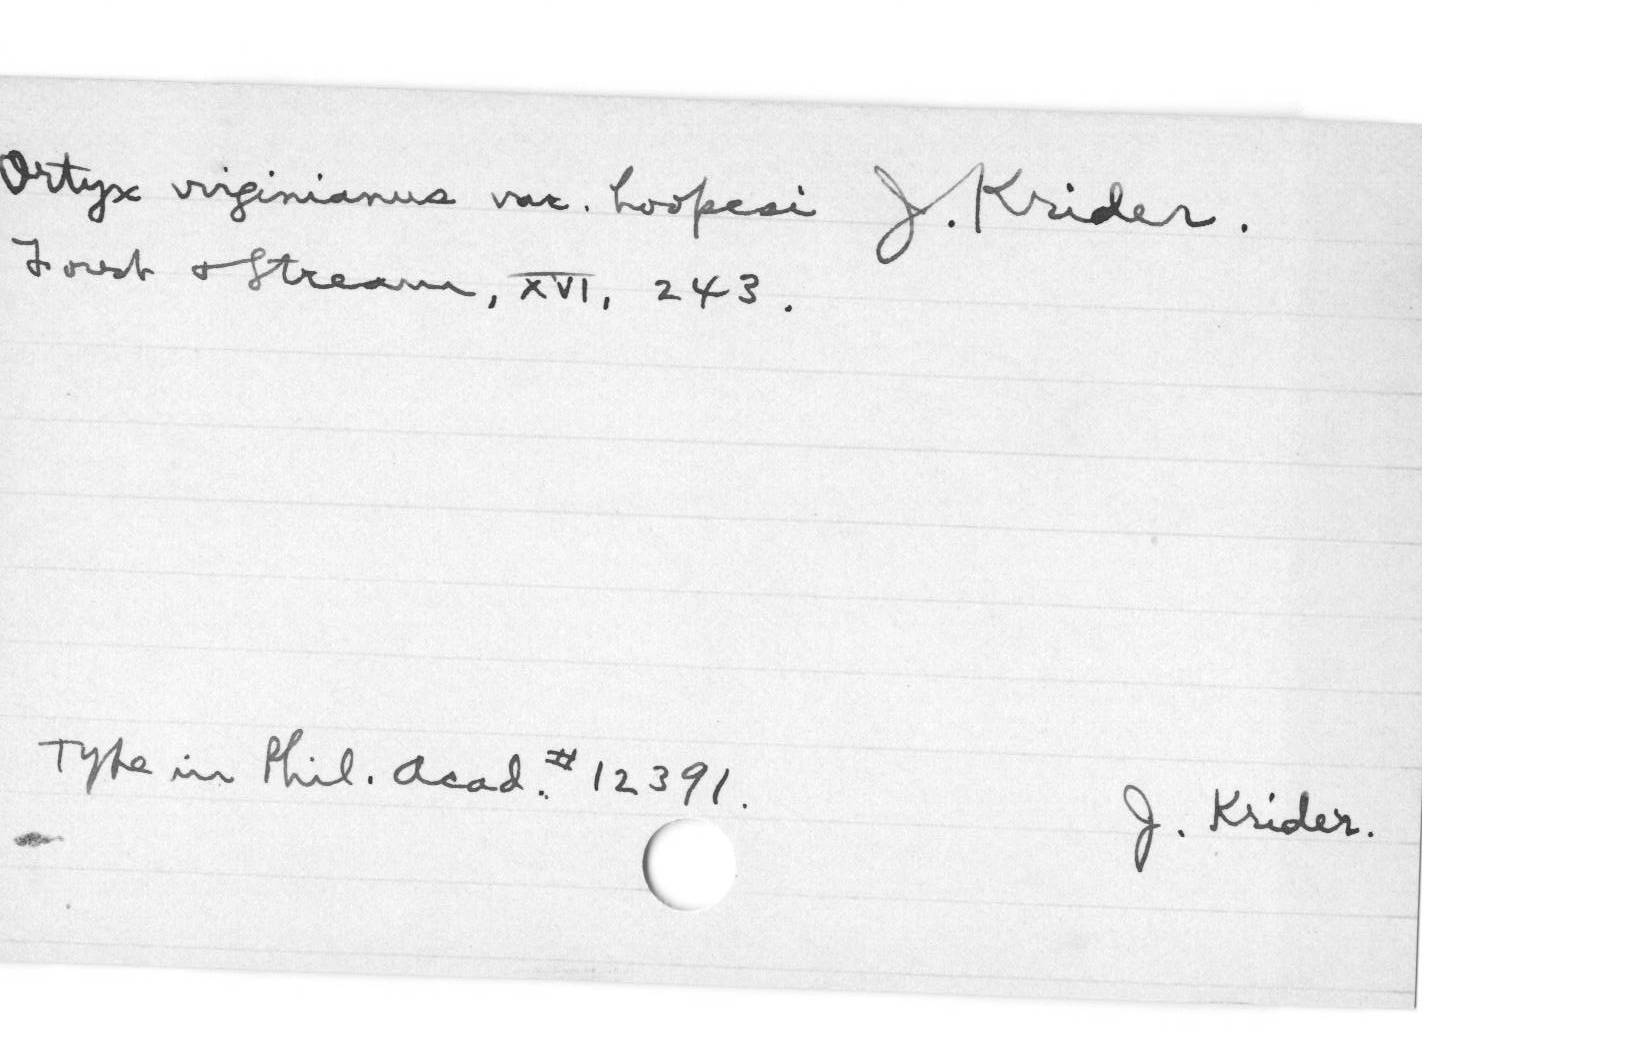 Ortyx virginianus var. hoopesi J. Krider.
Forest & Stream, XVI, 243.
Type in Phil. Acad. # 12391.
J. Krider.